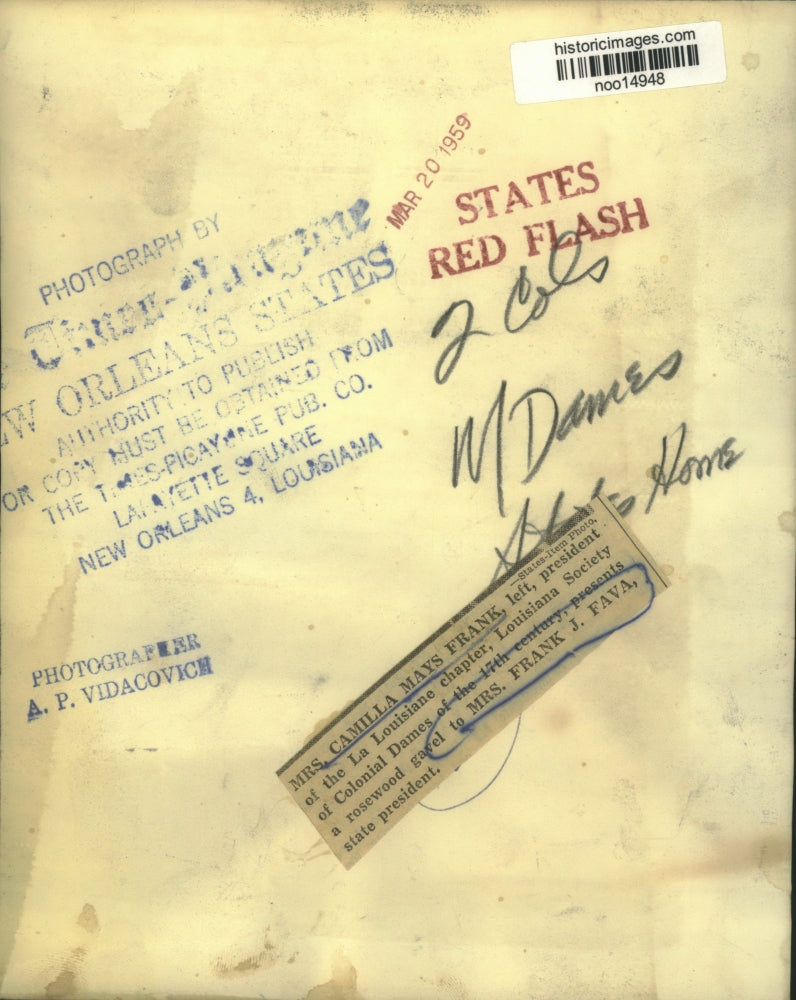 historicimages.com
noo14948
MAR 20 1959
STATES
RED FLASH
PHOTOGRAPH BY
Times-Picayune
NEW ORLEANS STATES
AUTHORITY TO PUBLISH
OR COPY MUST BE OBTAINED FROM
THE TIMES-PICAYUNE PUB. CO.
LAFAYETTE SQUARE
NEW ORLEANS 4, LOUISIANA
2 Cols
M Dames
Home
—States-Item Photo.
MRS. CAMILLA MAYS FRANK, left, president
of the La Louisiane chapter, Louisiana Society
of Colonial Dames of the 17th century, presents
a rosewood gavel to MRS. FRANK J. FAVA,
state president.
PHOTOGRAPHER
A. P. VIDACOVICH